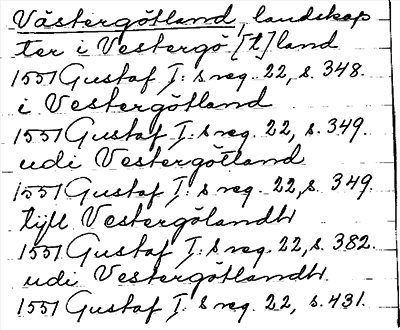 Västergötland, landskap
ter i Vestergö [t]land
1551 Gustaf I: s reg. 22, s. 348.
i Vestergötland
1551 Gustaf I: s reg. 22, s. 349.
udi Vestergötland
1551 Gustaf I: s reg. 22, s. 349.
tijll Vestergölandh
1551 Gustaf I: s reg. 22, s. 382.
udi Vestergötlandh.
1551 Gustaf I: s reg. 22, s. 431.